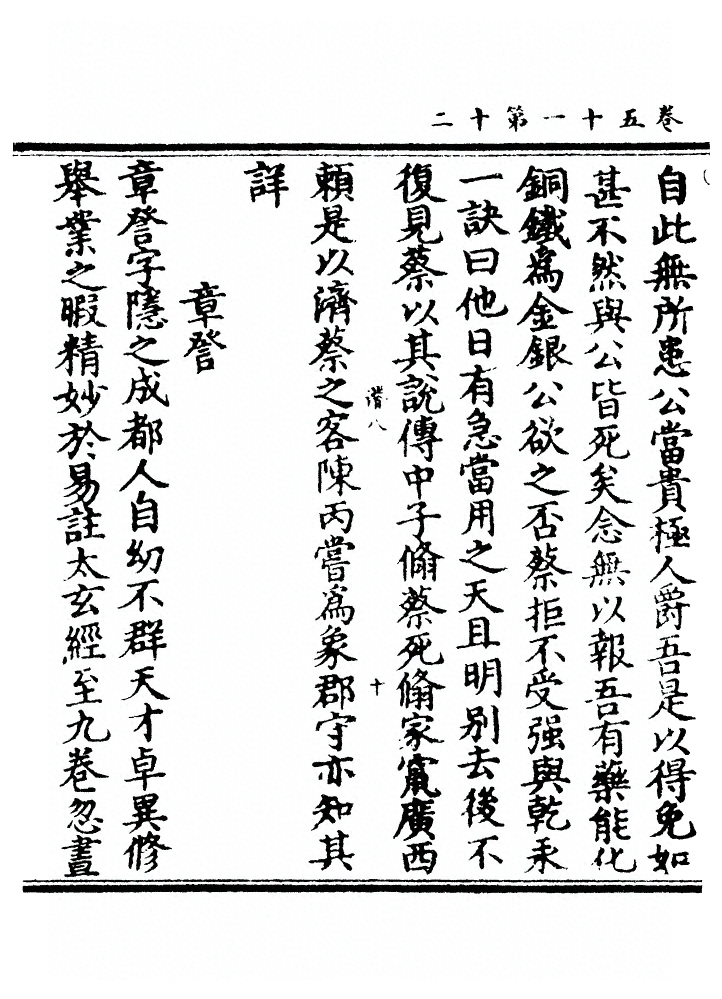 卷五十一第十二
自此無所患公當貴極人爵吾是以得免如
甚不然與公皆死矣念無以報吾有藥能化
銅鐵為金銀公欲之否蔡拒不受强與乾汞
一訣曰他日有急當用之天且明别去後不
復見蔡以其說傳中子翛蔡死翛家竄廣西
賴是以濟蔡之客陳丙嘗為象郡守亦知其
詳
章詧
章詧字隱之成都人自幼不群天才卓異修
舉業之暇精妙於易註太玄經至九卷忽晝
十